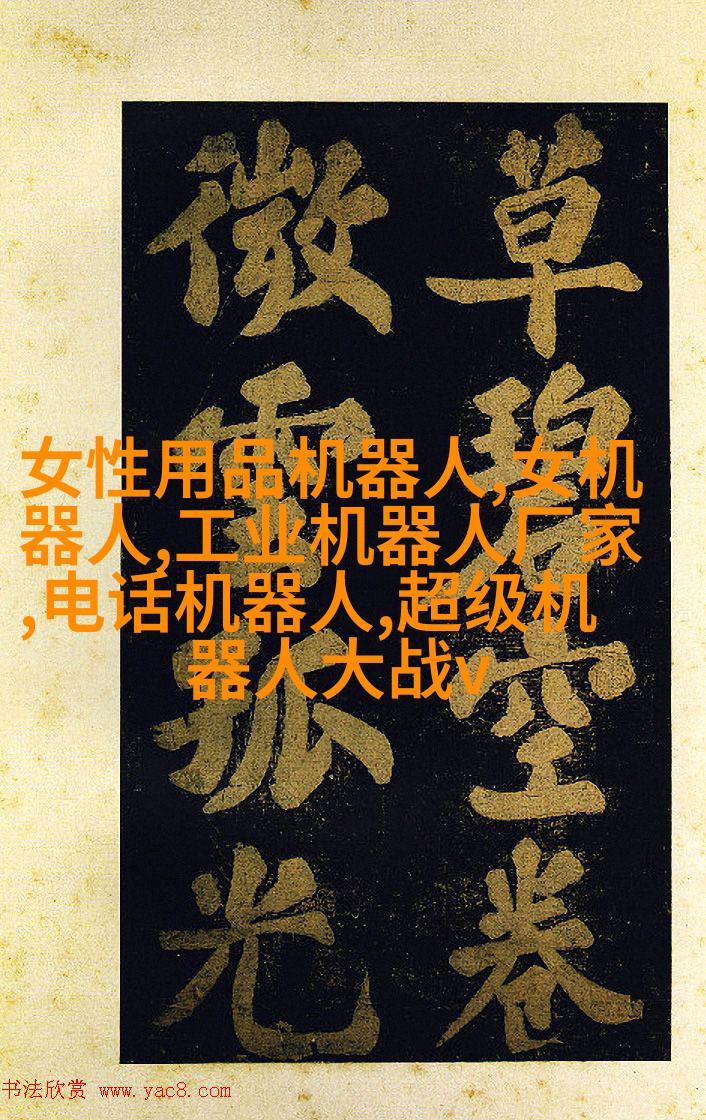 草碧空卷
微雲孤光
女性用品机器人,女机
器人,工业机器人厂家
,电话机器人,超级机
器人大战v
书法欣赏 www.yac8.com